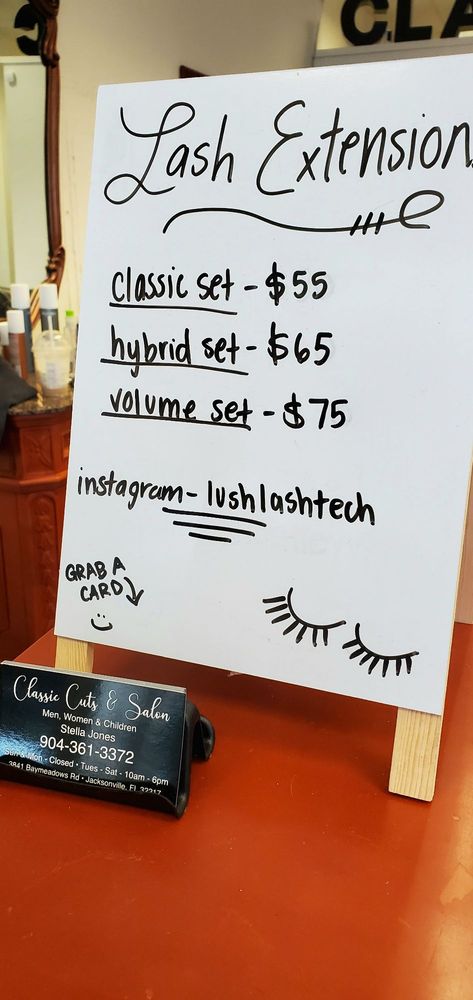 CLA
Lash Extension
classic set - $55
hybrid set - $65
volume set - $75
instagram - lushlashtech
GRAB A
CARD
Classic Cuts & Salon
Men, Women & Children
Stella Jones
904-361-3372
Sun & Mon - Closed • Tues - Sat - 10am - 6pm
3841 Baymeadows Rd • Jacksonville, FL 32217